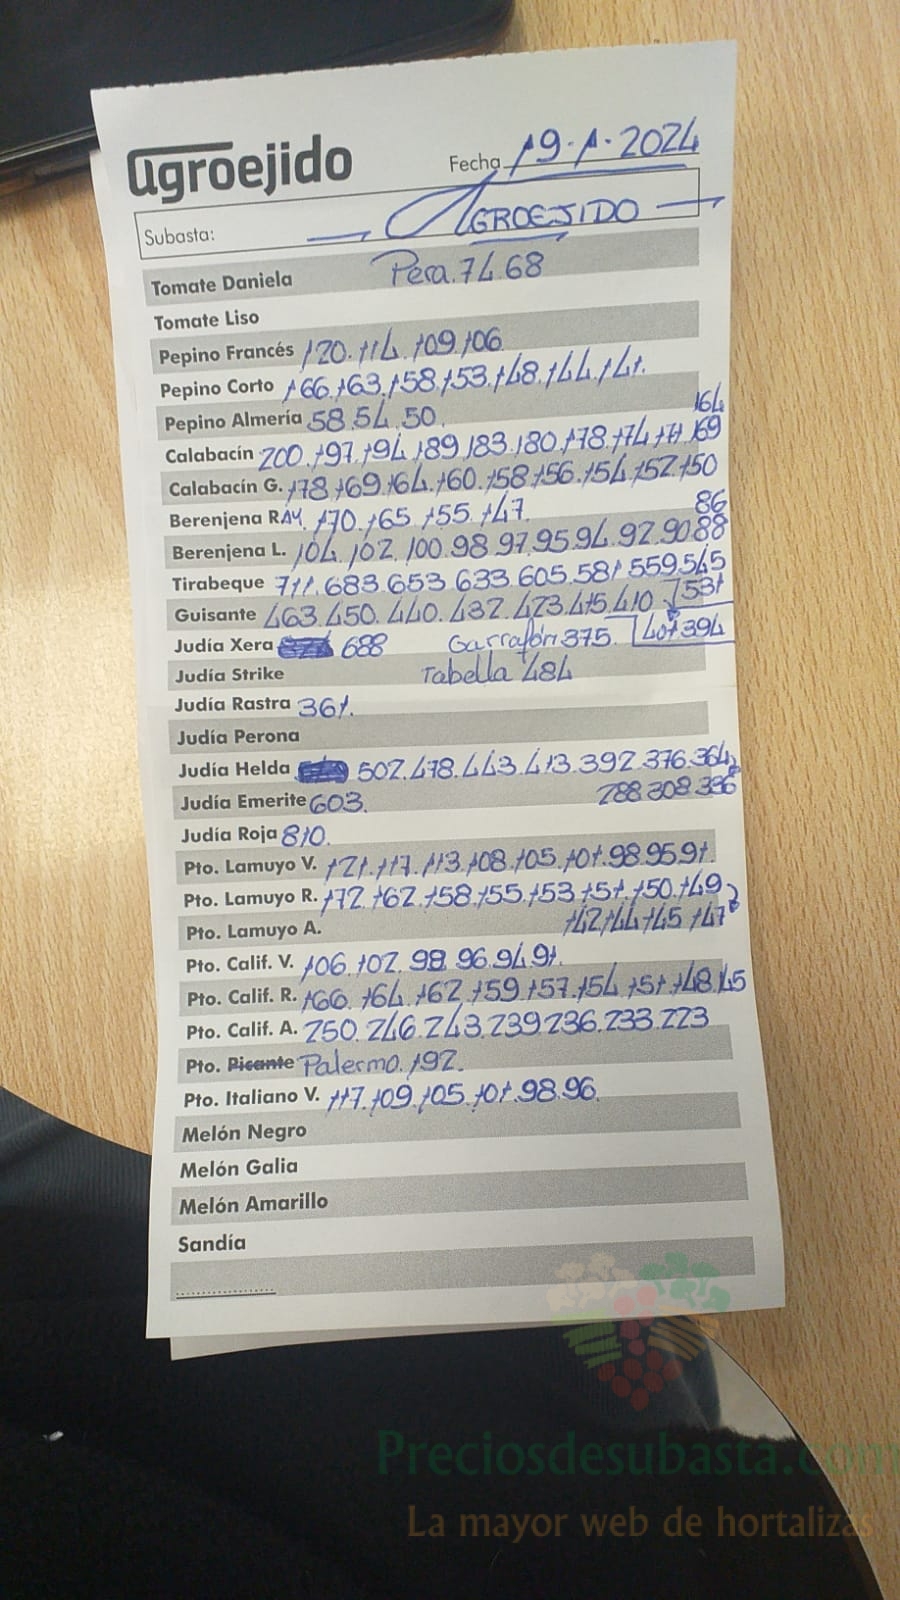 agroejido
Fecha 19-1-2024
Subasta: AGROEJIDO
Tomate Daniela Pera.74.68
Tomate Liso
Pepino Francés 120.114.109.106
Pepino Corto 166.163.158.153.148.144.141.
Pepino Almería 58.54.50.
164
Calabacín 200.197.194.189.183.180.178.174.171.169
Calabacín G. 178.169.164.160.158.156.154.152.150
Berenjena RAY. 170.165.155.147.
86
Berenjena L. 104.102.100.98.97.95.94.92.90.88
Tirabeque 711.683.653.633.605.581.559.545
531
Guisante 463.450.440.432.423.415.410
401.394
Judía Xera 688 Garrafón 375.
Judía Strike Tabella 484
Judía Rastra 361.
Judía Perona
Judía Helda 502.478.443.413.392.376.364
Judía Emerite 603. 288.308.336
Judía Roja 810.
Pto. Lamuyo V. 121.117.113.108.105.101.98.95.91.
Pto. Lamuyo R. 172.162.158.155.153.151.150.149
Pto. Lamuyo A. 142.144.145.147
Pto. Calif. V. 106.102.98.96.94.91.
Pto. Calif. R. 166.164.162.159.157.154.151.148.145
Pto. Calif. A. 250.246.243.239.236.233.223
Pto. Picante Palermo.192.
Pto. Italiano V. 117.109.105.101.98.96.
Melón Negro
Melón Galia
Melón Amarillo
Sandía
Preciosdesubasta.com
La mayor web de hortalizas